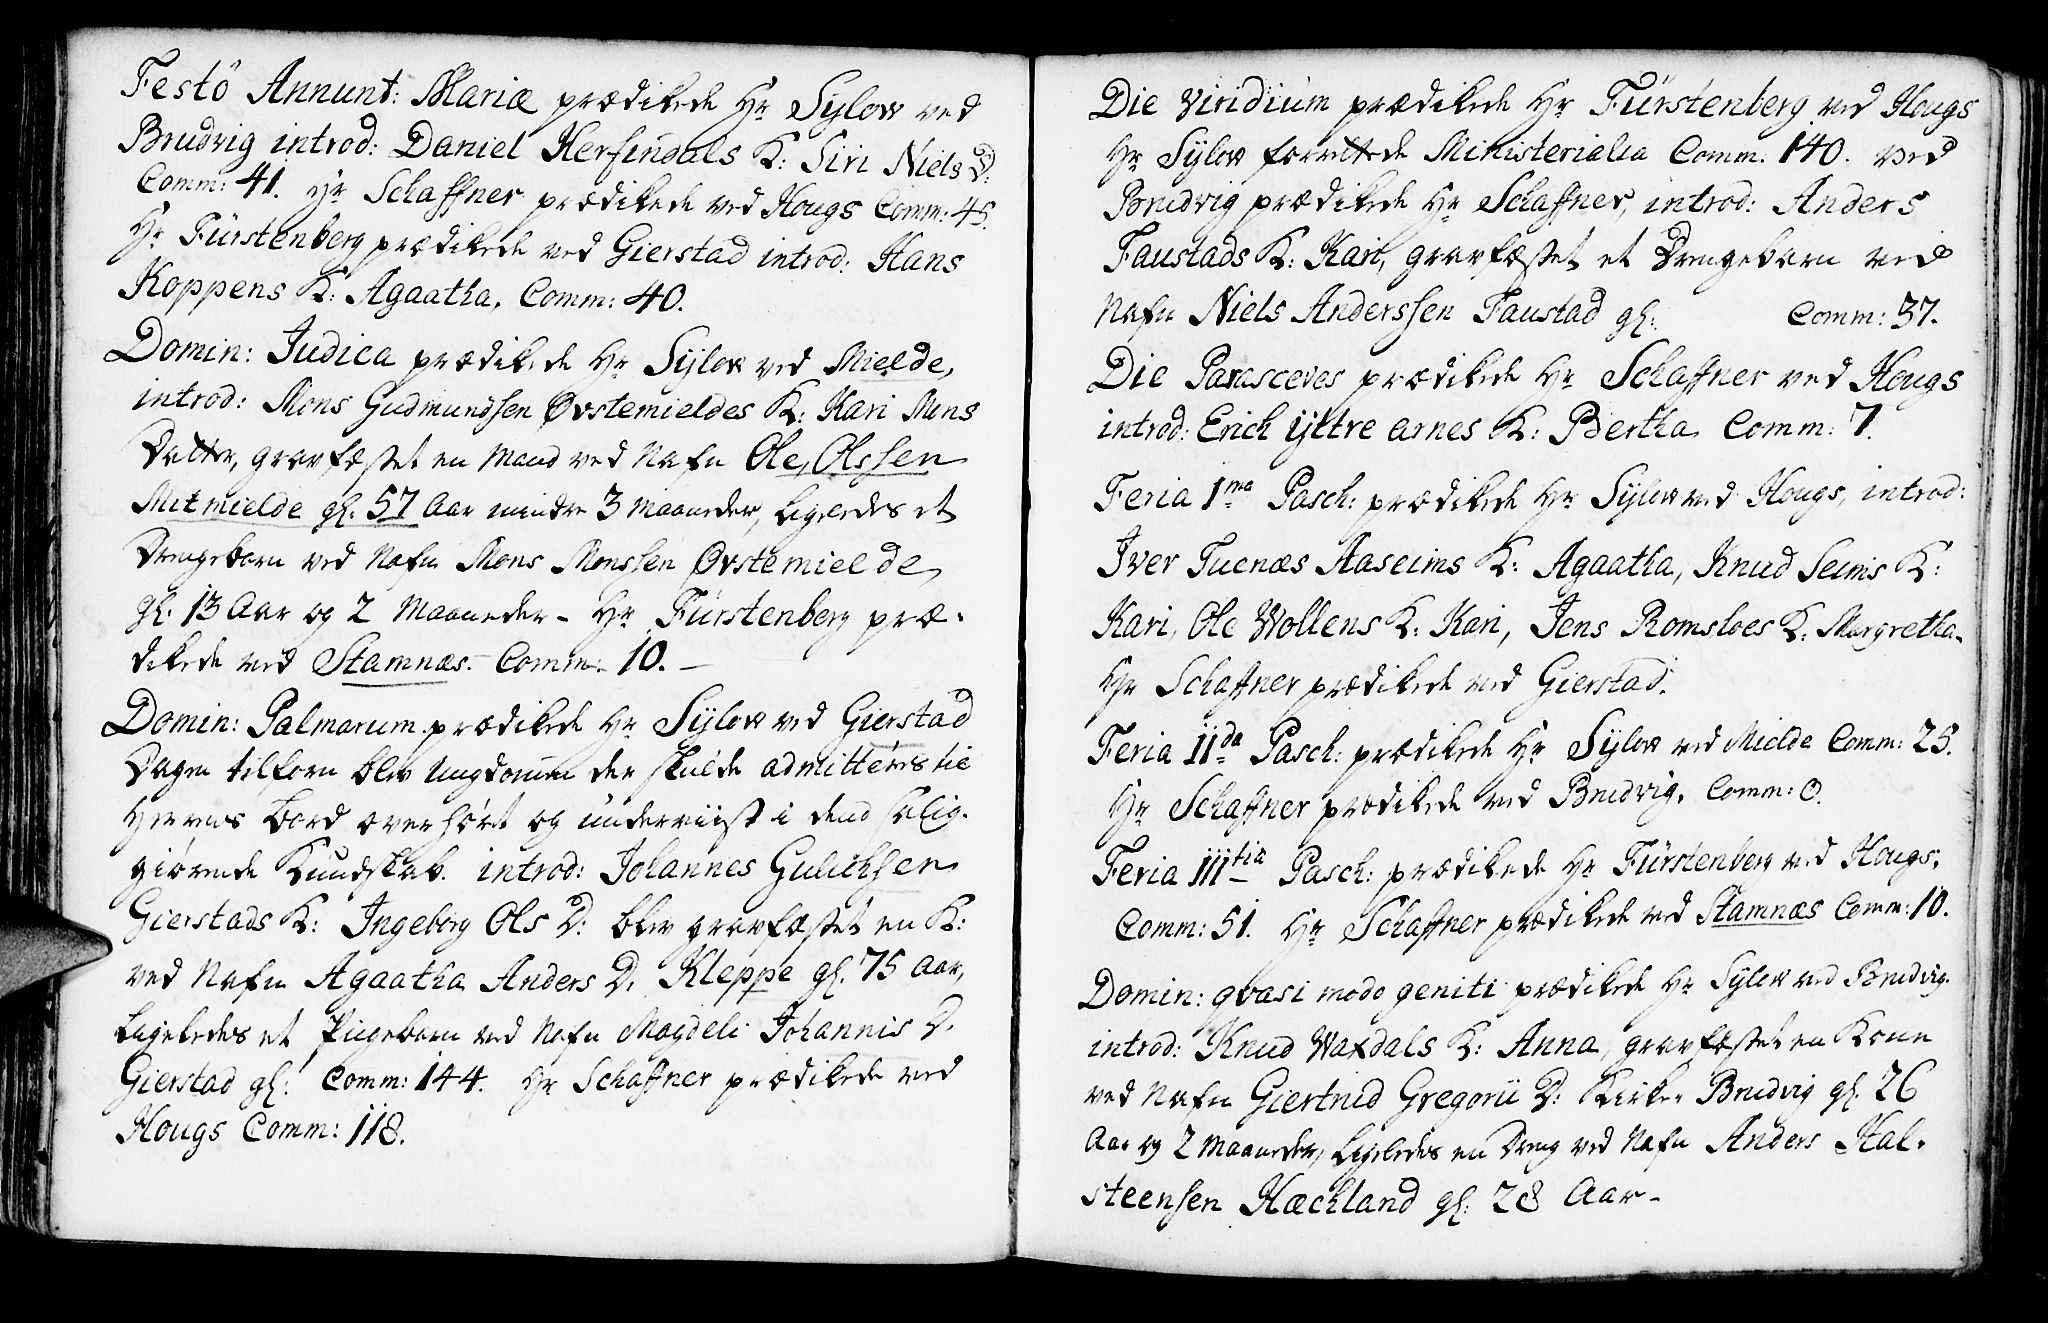 Festô Annunt: Mariæ prædikede Hr Sylow ved
Brudvig introd: Daniel Herfindals K: Siri Niels D:
Comm: 41. Hr Schaffner prædikede ved Hougs Comm: 45.
Hr Fürstenberg prædikede ved Gierstad introd: Hans
Koppens K: Agaatha, Comm: 40.
Domin: Judica prædikede Hr Sylow ved Mielde,
introd: Mons Gudmundsen Øvstemieldes K: Kari Mons
Datter, gravfæstet en Mand ved Nafn Ole Olssen
Mitmielde gl. 57 Aar mindre 3 Maaneder, Ligeledes et
Drengebarn ved Nafn Mons Monssen Øvstemielde
gl. 13 Aar og 2 Maaneder - Hr Fürstenberg præ-
dikede ved Stamnæs. - Comm: 10. -
Domin: Palmarum prædikede Hr Sylow ved Gierstad
Dagen tilforn blev Ungdomen der skulde admitteris til
Herrens bord overhørt og underviist i dend salig-
giørende Kundskab. introd: Johannes Gulichsen
Gierstads K: Ingeborg Ols D: blev gravfæstet en K:
ved Nafn Agaatha Anders D. Kleppe gl. 75 Aar,
Ligeledes et Pigebarn ved Nafn Magdeli Johannis D.
Gierstad gl: Comm: 144. Hr Schaffner prædikede ved
Hougs Comm: 118.
Die Viridium prædikede Hr Fürstenberg ved Hougs
Hr Sylow forrettede Ministerialia Comm: 140. ved
Brudvig prædikede Hr Schaffner, introd: Anders
Faustads K: Kari, gravfæstet et Drengebarn ved
Nafn Niels Anderssen Faustad gl: Comm: 37.
Die Parasceves prædikede Hr Schaffner ved Hougs
introd: Erich ÿttre arnes K: Bertha Comm: 7.
Feria 1ma Pasch: prædikede Hr Sylow ved Hougs, introd:
Iver Tuenæs Aaseims K: Agaatha, Knud Seims K:
Kari, Ole Wollens K: Kari, Jens Romsloes K: Margretha.
Hr Schaffner prædikede ved Gierstad.
Feria IIda Pasch: prædikede Hr Sylow ved Mielde Comm: 25.
Hr Schaffner prædikede ved Brudvig. Comm: 0.
Feria IIItia Pasch: prædikede Hr Fürstenberg ved Hougs.
Comm: 51. Hr Schaffner prædikede ved Stamnæs Comm: 10.
Domin: qvasi modo geniti prædikede Hr Sylow ved Brudvig.
introd: Knud Waxdals K: Anna, gravfæstet en Kone
ved Nafn Giertrud Gregorii D: Kirke Brudvig gl. 26
Aar og 2 Maaneder, Ligeledes en Dreng ved Nafn Anders Hal-
steensen Hæckland gl: 28 Aar -